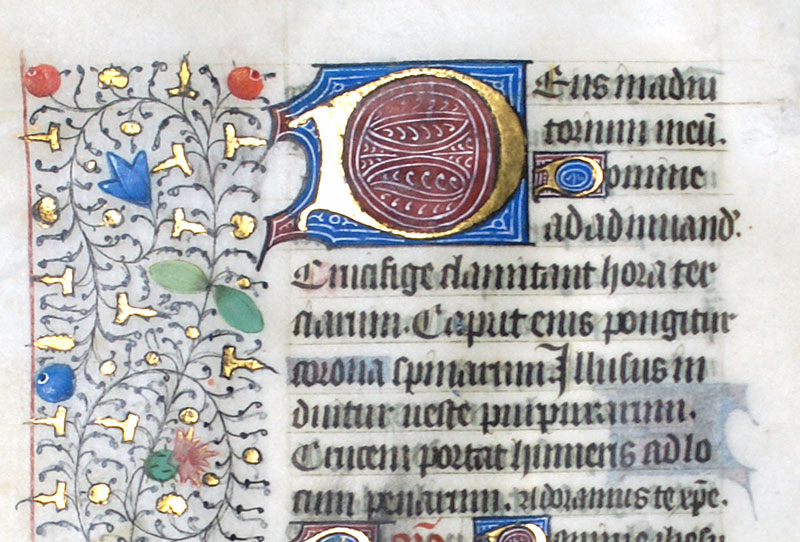 Deus in adiu
torium meū.
Domine
ad adiuuand'
Crucifige clamitant hora ter
ciarum. Caput eius pongitur
corona spinarum Illusus in
duitur ueste purpurarum.
Crucem portat humeris ad lo
cum penarum. adoramus te xpē.
Domine ihesu